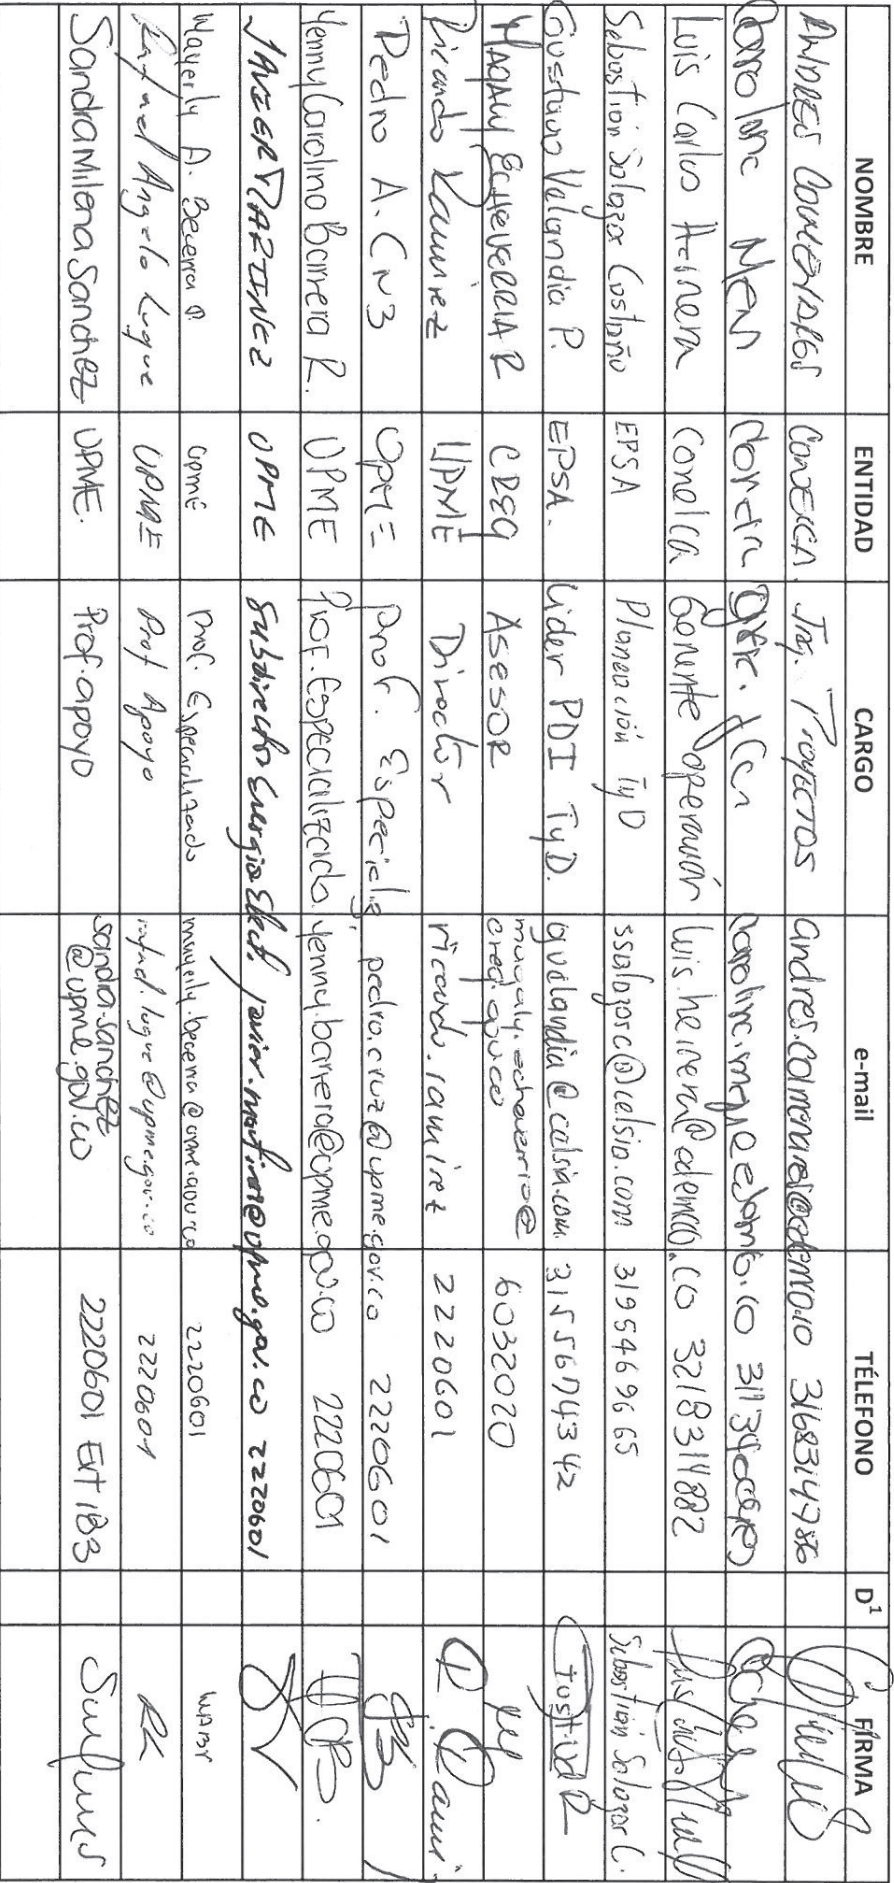 NOMBRE ENTIDAD CARGO e-mail TÉLEFONO D¹ FIRMA
ANDRES COLMENARES CONELCA. Ing. PROYECTOS 3168314786
Luis Carlos Herrera Conelca Gerente operación 3218314882
Sebastian Salazar Castaño EPSA Planeación TyD ssalazarc@celsia.com 3195469665 Sebastián Salazar C.
Gustavo Velandia P. EPSA. Lider PDI TyD. gvelandia@celsia.com 3155674342
MAGALY ECHEVERRIA R CREG ASESOR magaly.echeverria@
creg.gov.co 6032020
Ricardo Ramirez UPME Director ricardo.ramirez 2220601
Pedro A. Cruz UPME Prof. Especializ pedro.cruz@upme.gov.co 2220601
Yenny Carolina Barrera R. UPME Prof. Especializada. yenny.barrera@upme.gov.co 2220601
JAVIER MARTINEZ UPME Subdirector Energía Eléct. javier.martinez@upme.gov.co 2220601
Mayerly A. Becerra P. UPME Prof. Especializado mayerly.becerra@upme.gov.co 2220601
Rafael Angelo Luque UPME Prof Apoyo rafael.luque@upme.gov.co 2220601 RL
Sandra Milena Sanchez UPME. Prof. apoyo sandra.sanchez
@upme.gov.co 2220601 EXT 183